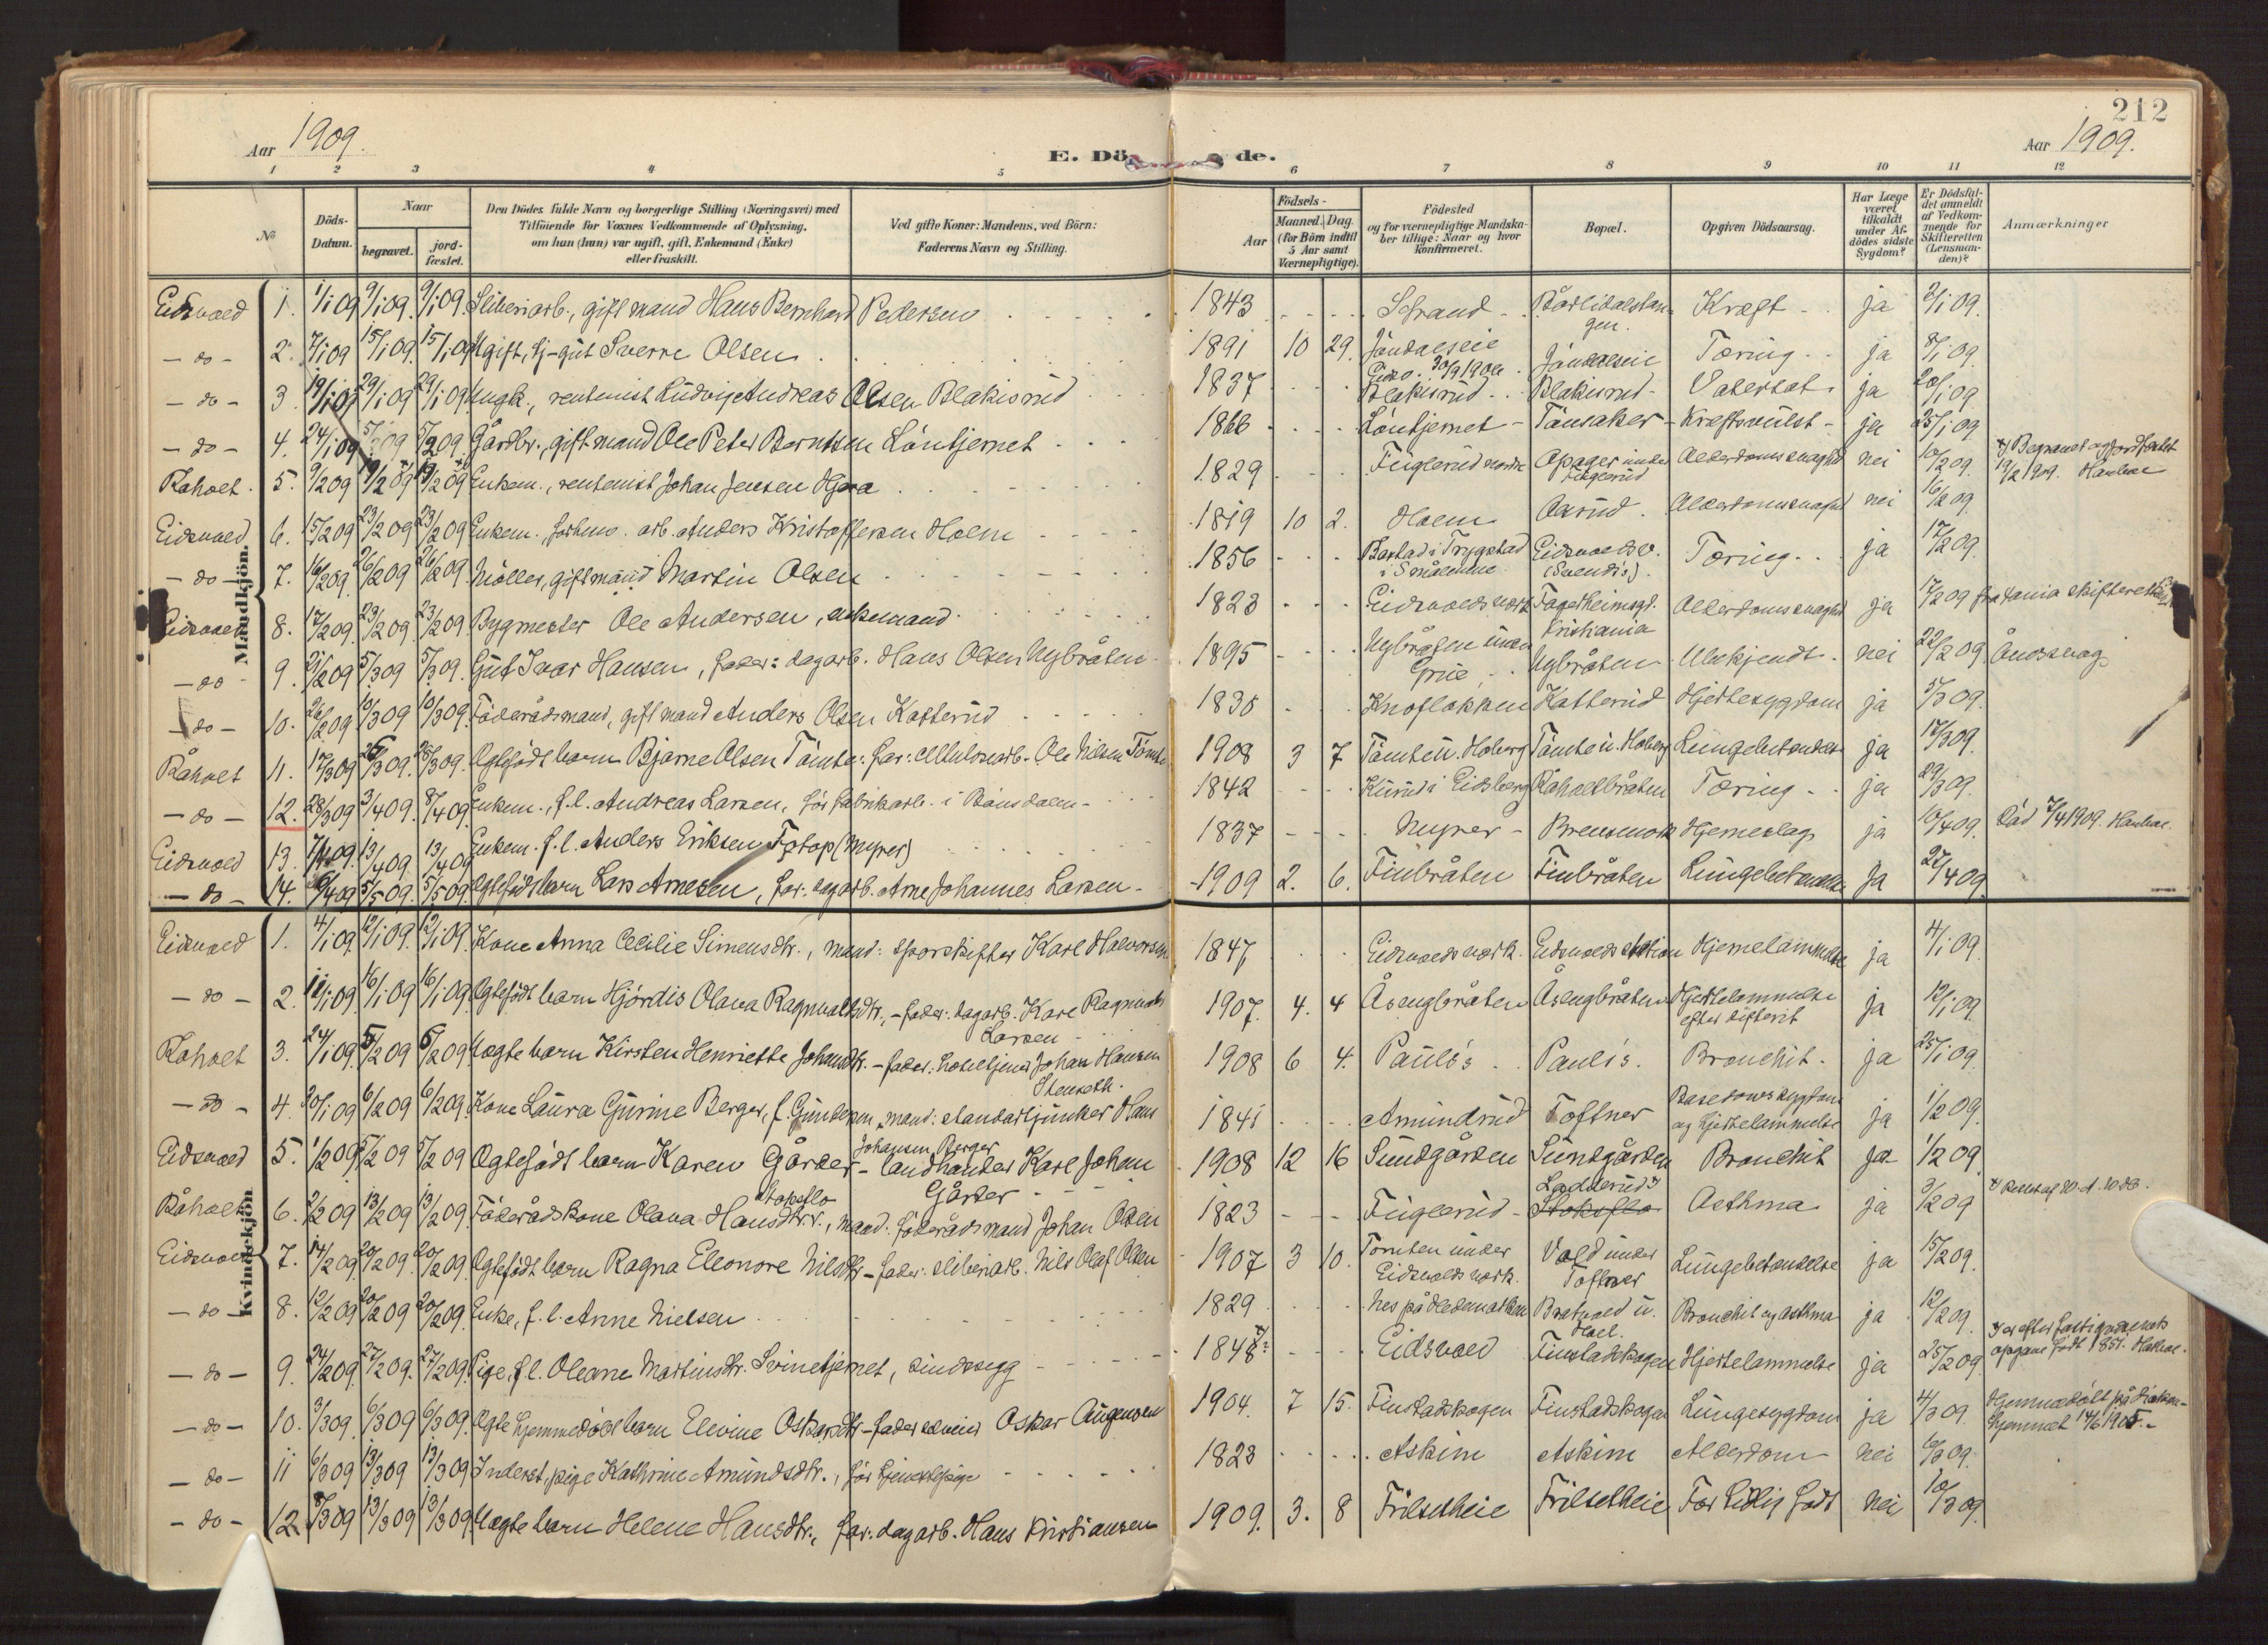 212
Aar 1909.
E. Dö de.
Aar 1909.
1 2 3 4 5 6 7 8 9 10 11 12
No
Döds-Datum.
Naar
begravet.
jord-fæstet.
Den Dödes fulde Navn og borgerlige Stilling (Næringsvei) med
Tilföiende for Voxnes Vedkommende af Oplysning,
om han (hun) var ugift, gift, Enkemand (Enke)
eller fraskilt.
Ved gifte Koner: Mandens, ved Börn:
Faderens Navn og Stilling.
Födsels-
Aar
Maaned.
Dag
(for Börn indtil
5 Aar samt
Værnepligtige).
Födested
og for værnepligtige Mandska-
ber tillige: Naar og hvor
konfirmeret.
Bopæl.
Opgiven Dödsaarsag.
Har Læge
været
tilkaldt
under Af-
dödes sidste
Sygdom?
Er Dödsfal-
det anmeldt
af Vedkom-
mende for
Skifteretten
(Lensman-
den)?
Anmærkninger
Mandkjön.
Eidsvold 1. 1/1 09 9/1 09. 9/1 09. Sliberiarb., gift mand Hans Bernhard Pedersen 1843 Strand Bårlidalstangen. Kræft ja 2/1 09.
-do- 2. 7/1 09 15/1 09. 15/1 09 Ugift, Gut Sverre Olsen 1891 10 29. Jöndalseie Eidsv. 30/9 1906. Jöndalseie Tæring ja 8/1 09.
-do- 3. 19/1 09 29/1 09 29/1 09 Ungk., rentenist Ludvig Andreas Olsen Blakisrud 1837 Blakisrud Blakisrud Vatersot ja 20/1 09
-do- 4. 24/1 09 5/2 09 5/2 09. Gårdbr., gift mand Ole Peter Berntsen Löntjernet 1866 Löntjernet Tönsaker Kræftsvulst ja 25/1 09
Råholt. 5. 9/2 09 19/2 09 19/2 09 Enkem., rentenist Johan Jensen Hjera 1829 Fuglerud nordre Opager under Fuglerud Alderdomssvaghed nei 10/2 09. Begravet og jordfæstet 19/2 1909.
Eidsvold 6. 15/2 09 23/2 09 23/2 09 Enkem., forhenv. arb. Anders Kristoffersen Holm 1819 10 2. Holm Aasrud. Alderdomssvaghed nei 16/2 09.
-do- 7. 16/2 09. 26/2 09 26/2 09. Möller, gift mand Martin Olsen 1856 Båstad i Trygstad i Smålenene Eidsvoldsv. Tæring ja 17/2 09.
Eidsvold 8. 17/2 09. 23/2 09 23/2 09. Bygmester Ole Andersen, enkemand 1823 Eidsvolds værk Fagerheimsgd. Kristiania Alderdomssvaghed ja 17/2 09
-do- 9. 21/2 09 5/3 09 5/3 09. Gut Ivar Hansen, fader: dagarb. Hans Olsen Nybråten 1895 Nybråten Grue Nybråten Ubekjendt nei 22/2 09. Åndssvag
-do- 10. 26/2 09 10/3 09 10/3 09. Föderådsmand, gift mand Anders Olsen Katterud 1835 Knoflokken Katterud Hjertesygdom ja 5/3 09.
Råholt 11. 17/3 09 26/3 09. 26/3 09. Ægtefödt barn Bjarne Olsen Tömte: far: cellulosearb. Ole Nilsen Tömte 1908 3 7 Tömte u. Hoberg Tömte u. Hoberg Lungebetændelse ja 17/3 09.
-do- 12. 28/3 09 3/4 09. 8/4 09. Enkem., f.l. Andreas Larsen, för fabrikarb. i Bönsdalen 1842 Kurud i Eidsberg Råholtbråten Tæring ja 29/3 09.
Eidsvold 13. 7/4 09. 13/4 09 13/4 09 Enkem. f.l. Anders Eriksen Fotop (Myrer) 1837 Myrer Brensmork Hjerneslag ja 10/4 09. Död 7/4 1909.
-do- 14. 26/4 09 5/5 09. 5/5 09 Ægtefödt barn Lars Arnesen, far: dagarb. Arne Johannes Larsen 1909 2. 6. Finbråten Finbråten Lungebetændelse ja 27/4 09.
Kvindekjön
Eidsvold 1. 4/1 09. 12/1 09. 12/1 09. Kone Anna Cecilie Simensdtr., mand: sporskifter Karl Halvorsen 1847 Eidsvolds værk. Eidsvolds station Hjernelammelse ja 4/1 09.
-do- 2. 11/1 09. 16/1 09 16/1 09. Ægtefödt barn Hjördis Olava Ragnvaldsdtr., - fader: dagarb. Karl Ragnvald Larsen 1907. 4. 4 Åsengbråten Åsengbråten Hjertelammelse efter difterit ja 12/1 09.
Råholt 3. 24/1 09. 5/2 09 5/2 09 Uægte barn Kirsten Henriette Johansdtr. - fader: hotelltjener Johan Hansen Stenseth. 1908 6 4. Paulis Paulis. Bronchit ja 25/1 09.
-do- 4. 30/1 09 6/2 09 6/2 09. Kone Laura Gurine Berger, f. Gundersen, mand: standartjunker Hans Johansen Berger 1841 Amundrud Toftner Basedows sygdom og hjertelammelse ja 1/2 09.
Eidsvold 5. 1/2 09 5/2 09 5/2 09 Ægtefödt barn Karen Gårder - landhandler Karl Johan Gårder 1908 12 16 Sundgården Sundgården Bronchit ja 1/2 09
Råholt 6. 2/2 09 13/2 09 13/2 09 Föderådskone Olava Hansdtr. Stokflo, mand: föderådsmand Johan Olsen 1823 Fuglerud Ladderud Stokflo Asthma ja 3/2 09
Eidsvold 7. 14/2 09. 20/2 09. 20/2 09. Ægtefödt barn Ragna Eleonore Nilsdtr. - fader: sliberiarb. Nils Olaf Olsen 1907 3 10. Tomten under Eidsvolds værk. Vold under Toftner Lungebetændelse ja 15/2 09.
-do- 8. 12/2 09 20/2 09 20/2 09. Enke, f.l. Anne Nielsen 1829 Nes på Hedemarken Bratvold u. Hoel. Bronchit og Asthma ja 12/2 09.
-do- 9. 24/2 09. 27/2 09. 27/2 09. Pige, f.l. Oleane Martinsdtr. Svinetjernet, sindssyg 1848? Eidsvold Finstadskogen Hjertelammelse ja 25/2 09 er efter opgave födt 1851.
-do- 10. 3/3 09. 6/3 09 6/3 09. Ægte hjemmedöbt barn Elevine Oskarsdtr. - fader Oskar Augensen 1904. 7 15. Finstadskogen Finstadskogen Lungesygdom ja 4/3 09. Hjemmedöbt
-do- 11 6/3 09 13/3 09 13/3 09. Inderst, pige Kathrine Amundsdtr., för tjenestepige 1823 Askim Askim Alderdom nei 6/3 09.
-do- 12. 8/3 09 13/3 09 13/3 09. Uægte barn Helene Hansdtr., far: dagarb. Hans Kristiansen 1909. 3. 8 Frilsetheie Frilsetheie For tidlig födt nei 10/3 09.